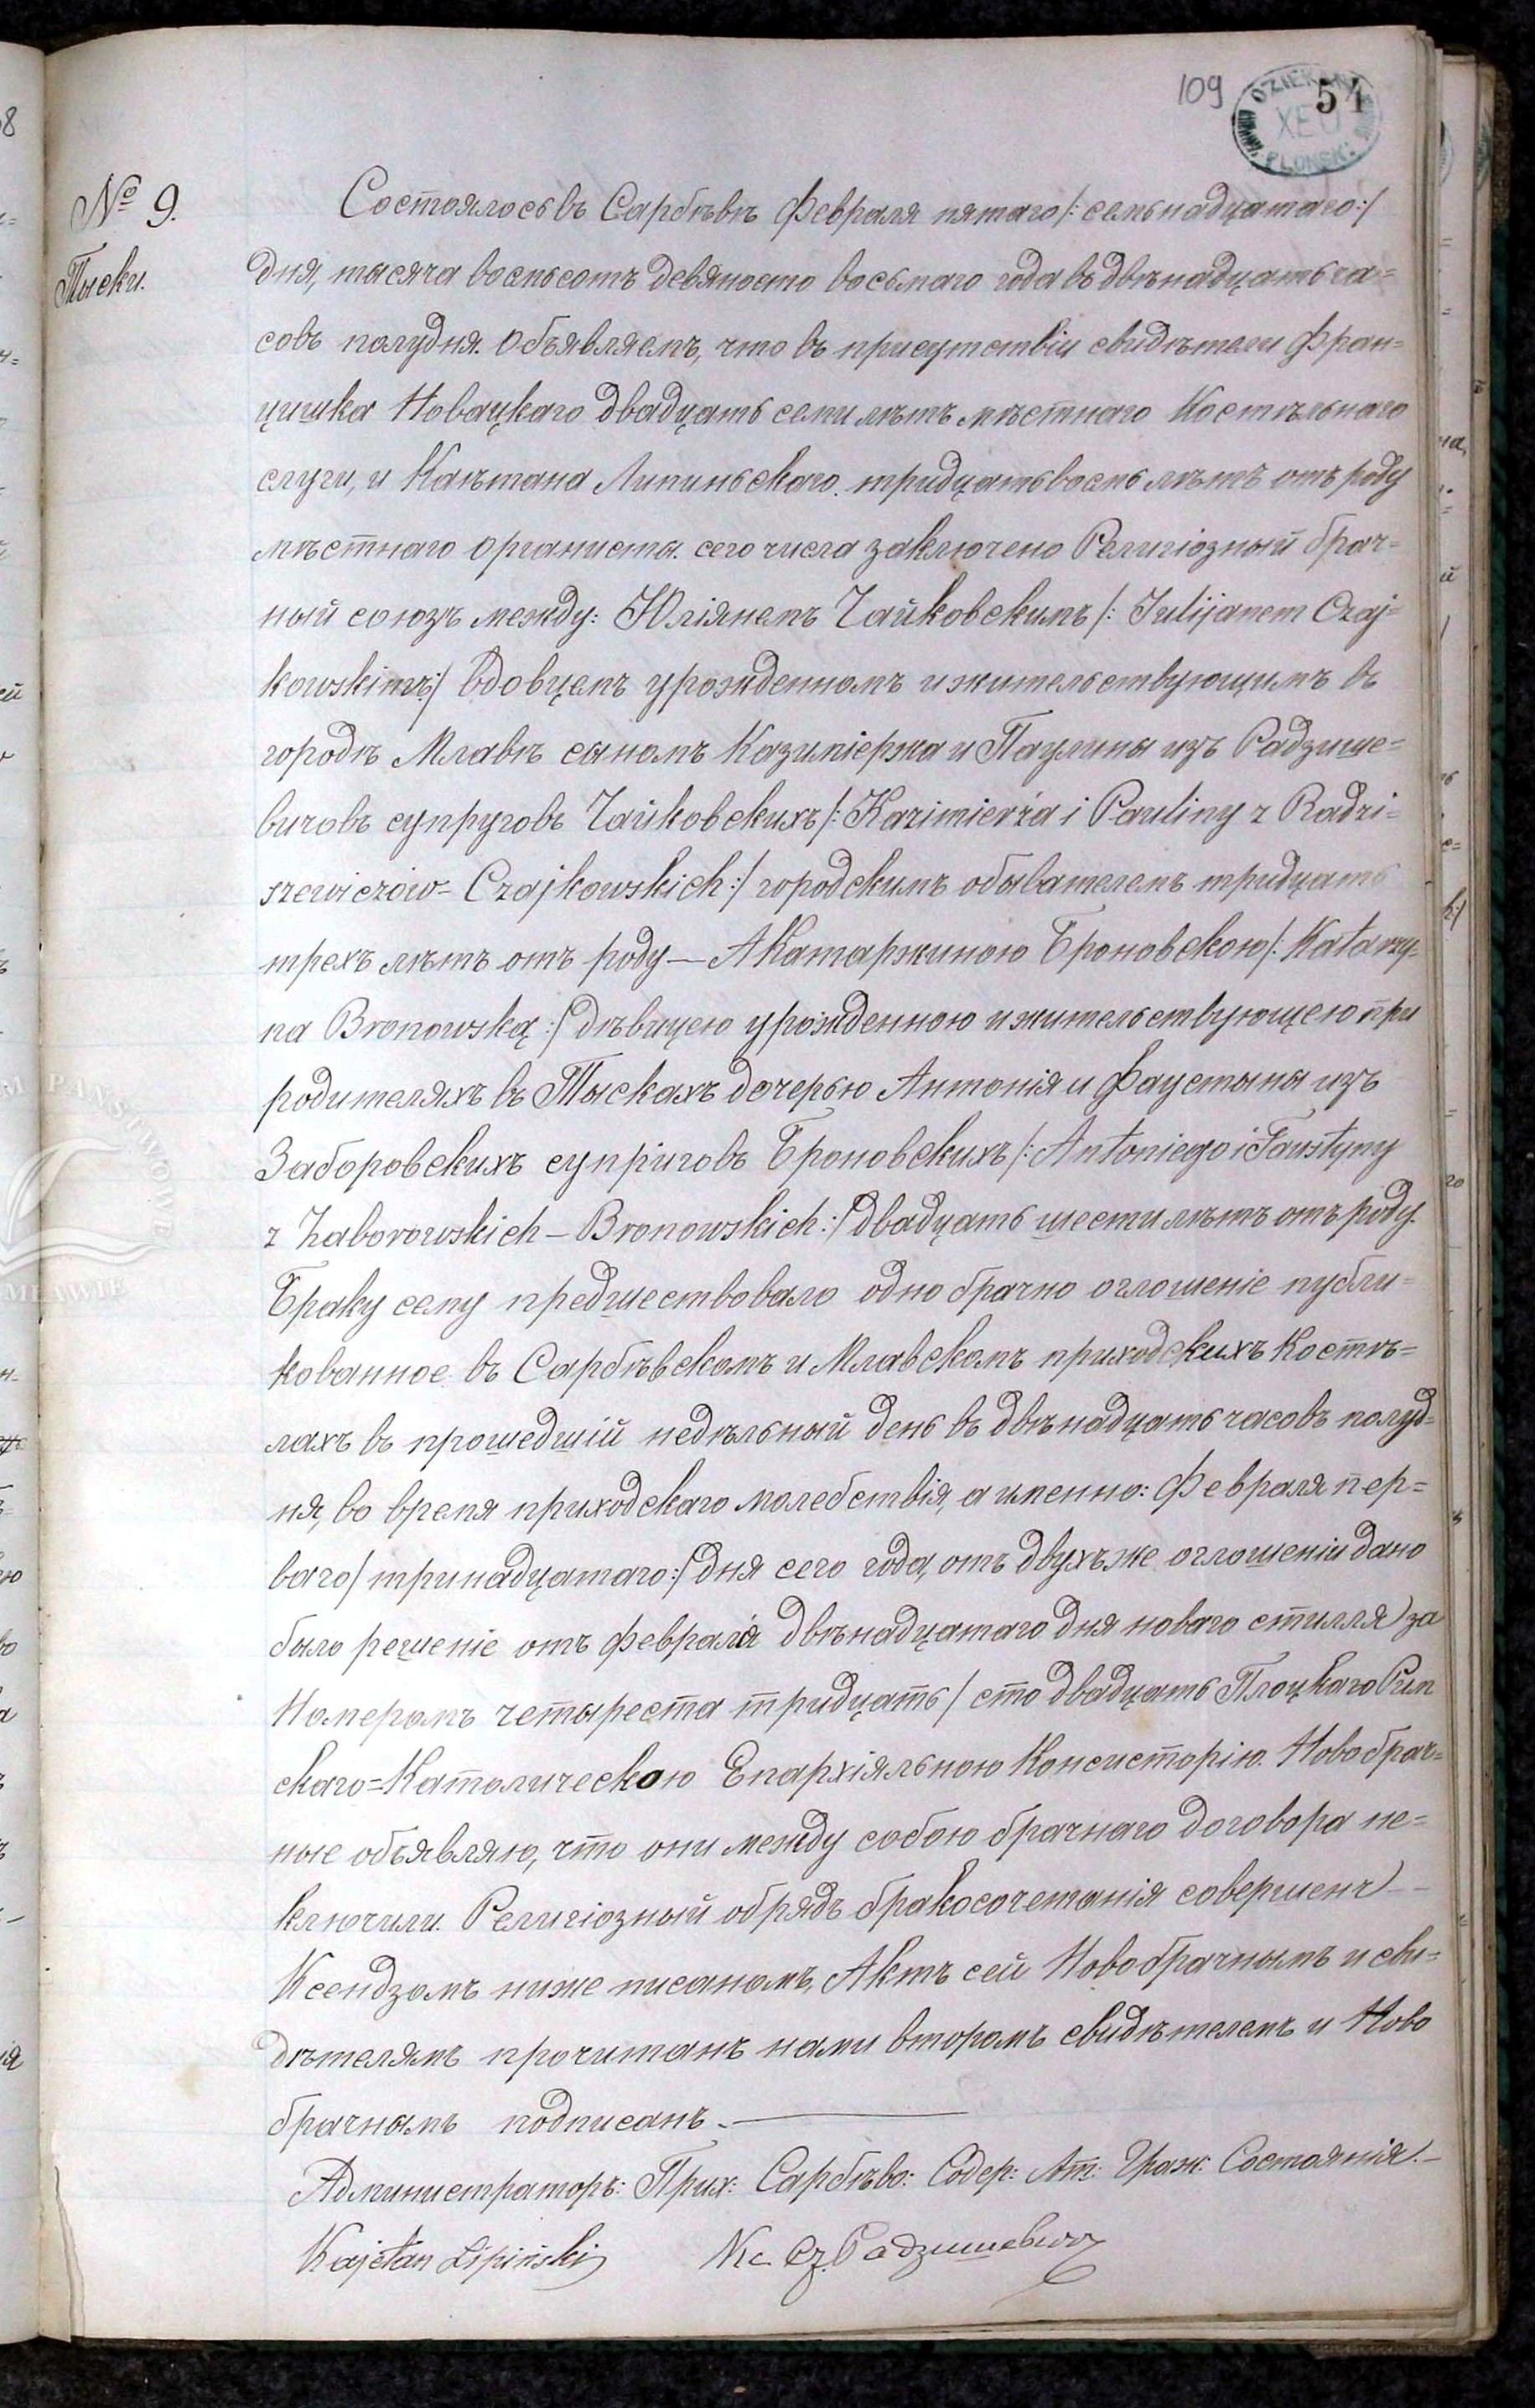 109
51
DZIEKAN
PLONSK:
№ 9.
Тыски.
Состоялось въ Сарбѣвѣ Февраля пятаго /: семьнадцатаго :/
дня, тысяча восмьсотъ девяносто восьмаго года въ двѣнадцать ча=
совъ полудня. Объявляемъ, что въ присутствіи свидѣтели Фран=
цишка Новацкаго двадцать семи лѣтъ мѣстнаго Костѣльнаго
слуги, и Каѣтана Липиньскаго тридцать восмь лѣтъ отъ роду
мѣстнаго органисты сего числа заключено Религіозный брач=
ный союзъ между: Юліянемъ Чайковскимъ /: Julijanem Czaj=
kowskimъ :/ вдовцемъ урожденномъ и жительствующимъ въ
городѣ Млавѣ сыномъ Казиміержа и Паулины изъ Радзише=
вичовъ супруговъ Чайковскихъ /: Kazimierża i Pauliny z Radzi=
szewiczów= Czajkowskich :/ городскимъ обывателемъ тридцать
трехъ лѣтъ отъ роду — А Катаржиною Броновскою /: Katarzy=
na Bronowską :/ дѣвицею урожденною и жительствующею при
родителяхъ въ Тыскахъ дочерью Антонія и Фаустыны изъ
Заборовскихъ суприговъ Броновскихъ /: Antoniego i Faustyny
z Zaborowskich – Bronowskich :/ двадцать шести лѣтъ отъ роду.
Браку сему предшествовало одно брачно оглошеніе публи=
кованное въ Сарбѣвскомъ и Млавскомъ приходскихъ Костѣ=
лахъ въ прошедшій недѣльный день въ двѣнадцать часовъ полуд=
ня, во время приходскаго молебствія, а именно: Февраля пер=
ваго / тринадцатаго :/ дня сего года, отъ двухъ же оглошеніи дано
было решеніе отъ Февраля двѣнадцатаго дня новаго стилля за
Номеромъ четыреста тридцать / сто двадцать Плоцкаго Рим
скаго=Католическою Епархіяльною Консисторію. Новобрач=
ные объявляю, что они между собою брачнаго договора не=
ключили. Религіозный обрядъ бракосочетанія совершенъ —
Ксендзомъ ниже писаномъ, Актъ сей Новобрачнымъ и сви=
дѣтелямъ прочитанъ нами вторымъ свидѣтелемъ и Ново
брачнымъ подписанъ. —
Администраторъ: Прих: Сарбѣво: Содер: Ат: Граж: Состоянія. –
Kajetan Lipiński Кс Радзишевичъ